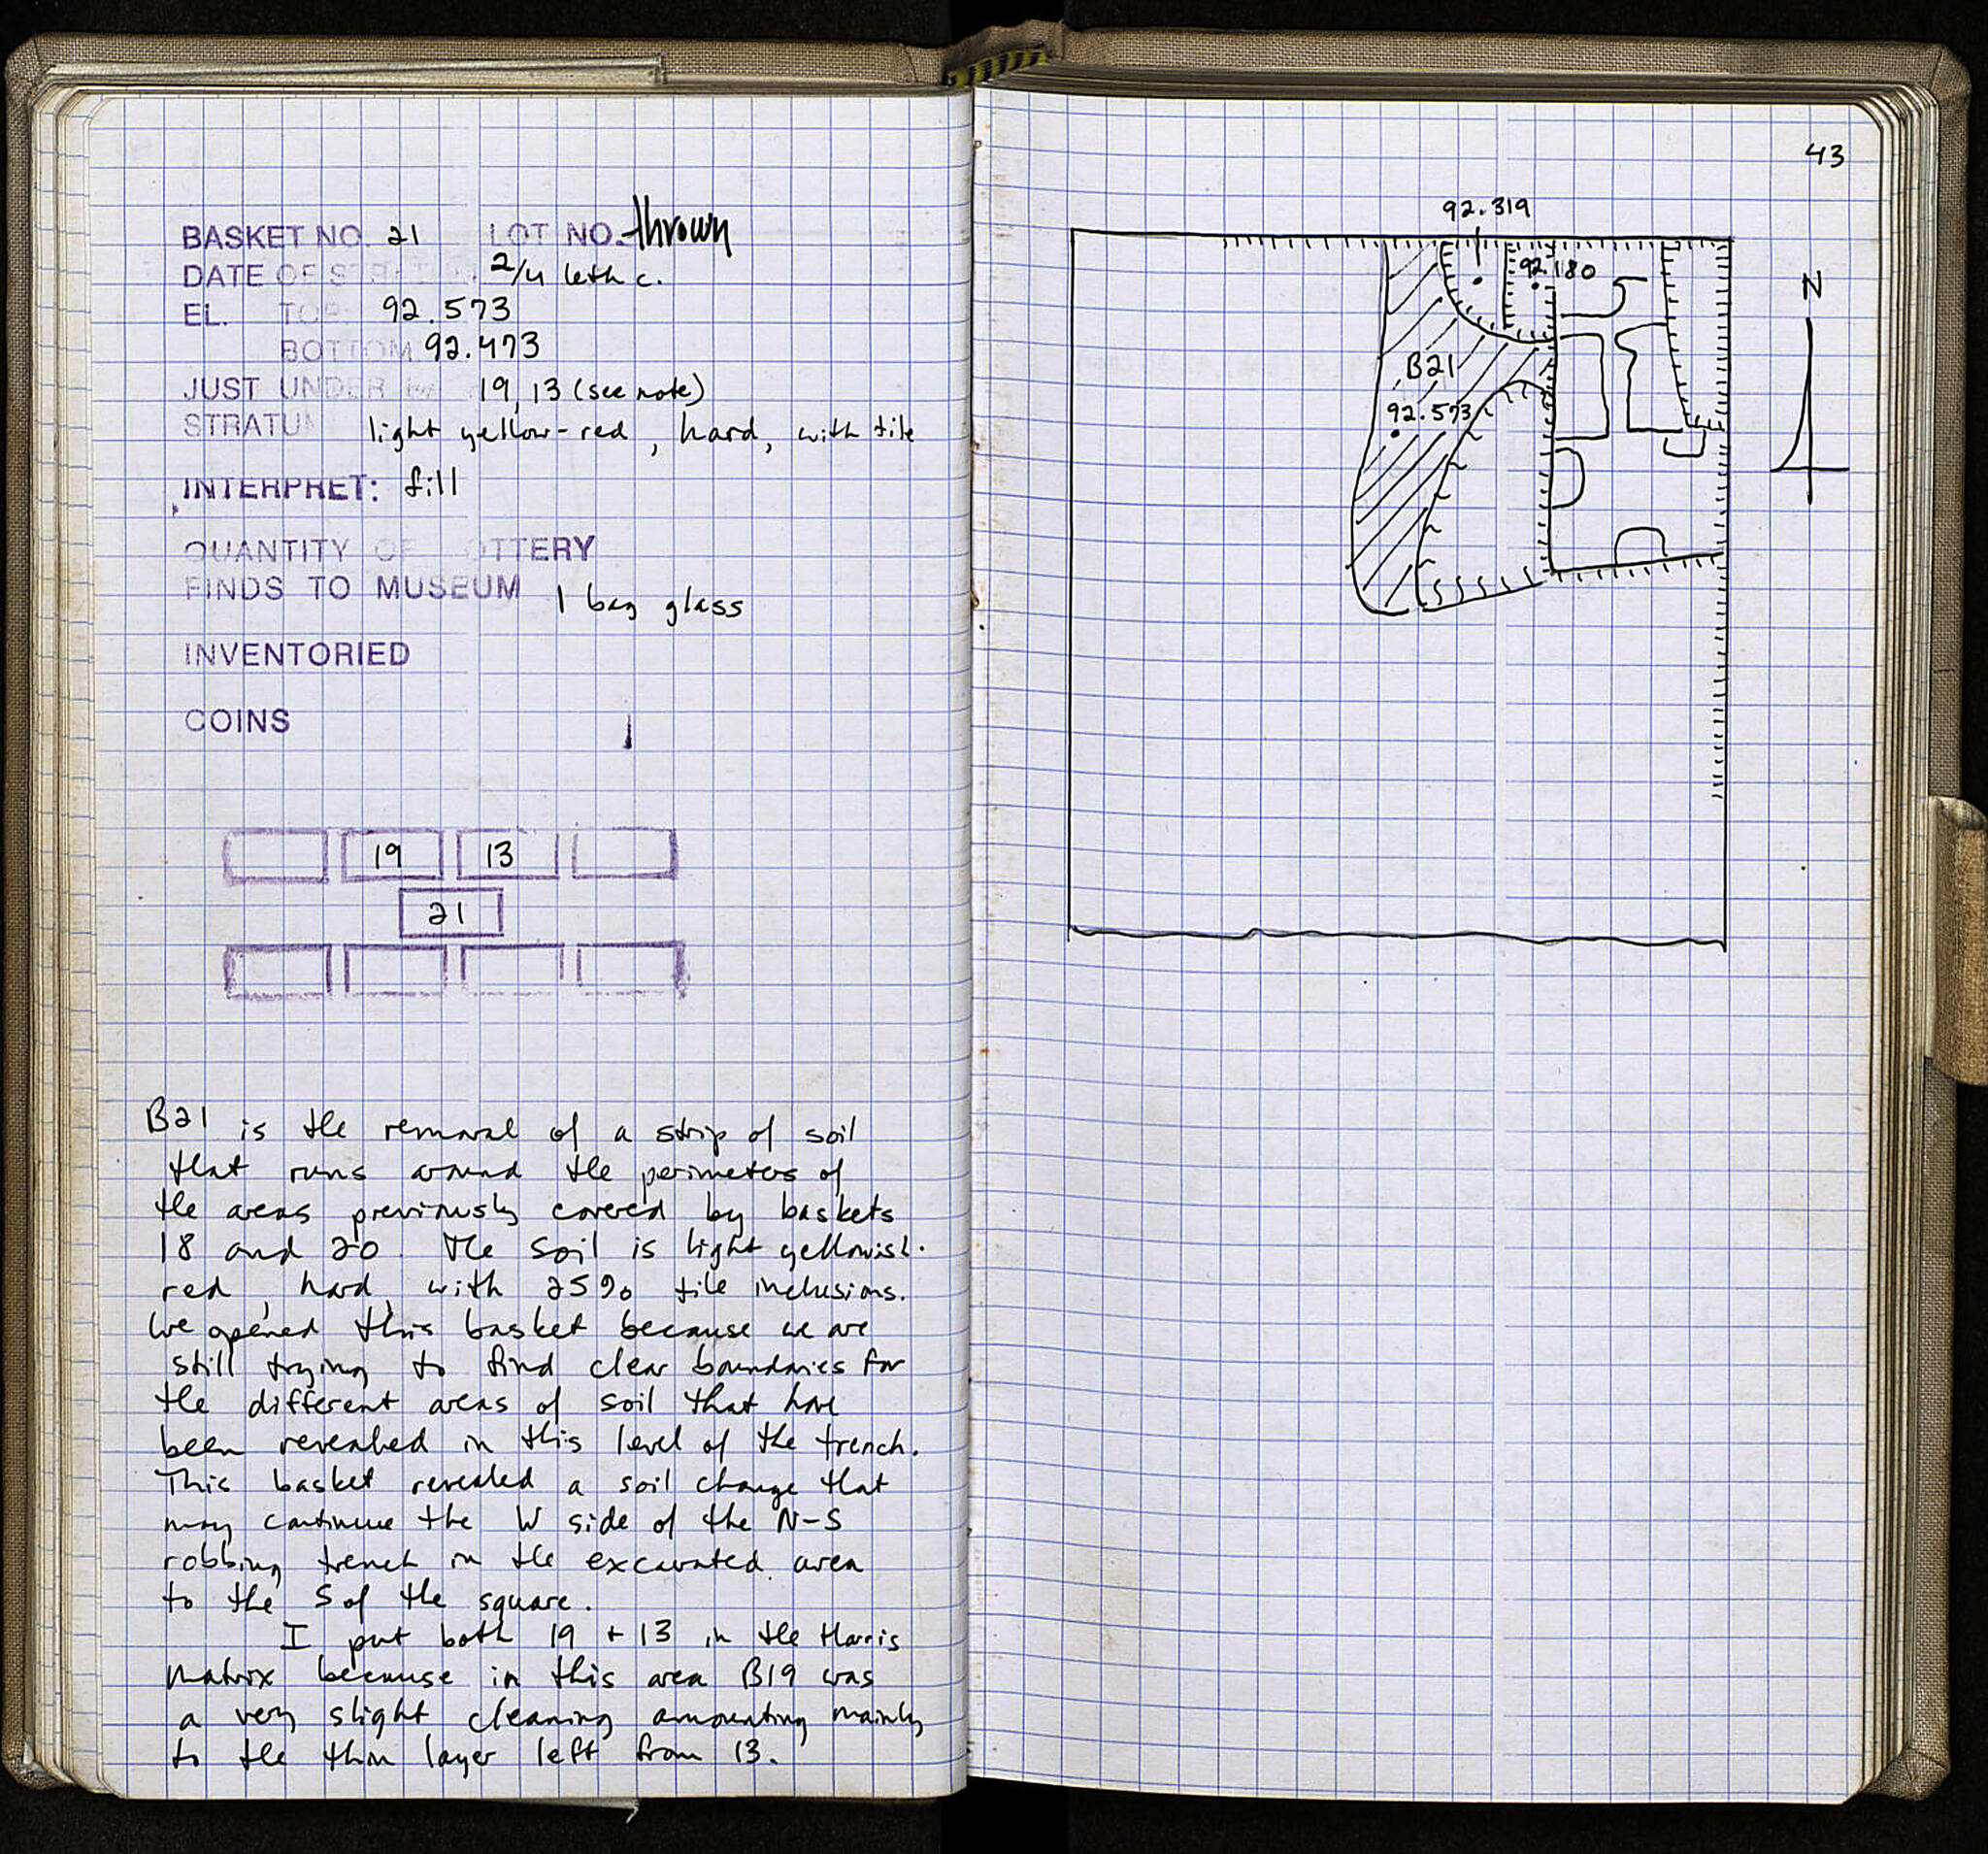 BASKET NO. 21 LOT NO. thrown
DATE OF STRAT 2/4 6th c.
EL. TOP. 92.573
BOTTOM 92.473
JUST UNDER 19, 13 (see note)
STRATUM light yellow-red, hard, with tile
INTERPRET: fill
QUANTITY OF POTTERY
FINDS TO MUSEUM 1 bag glass
INVENTORIED
COINS
19 13
21
B21 is the removal of a strip of soil
that runs around the perimeters of
the areas previously covered by baskets
18 and 20. The soil is light yellowish-
red, hard, with 25% tile inclusions.
We opened this basket because we are
still trying to find clear boundaries for
the different areas of soil that have
been revealed in this level of the trench.
This basket revealed a soil change that
may continue the W side of the N-S
robbing trench in the excavated area
to the S of the square.
I put both 19 + 13 in the Harris
Matrix because in this area B19 was
a very slight cleaning amounting mainly
to the thin layer left from 13.
43
92.319
92.180
N
B21
92.573